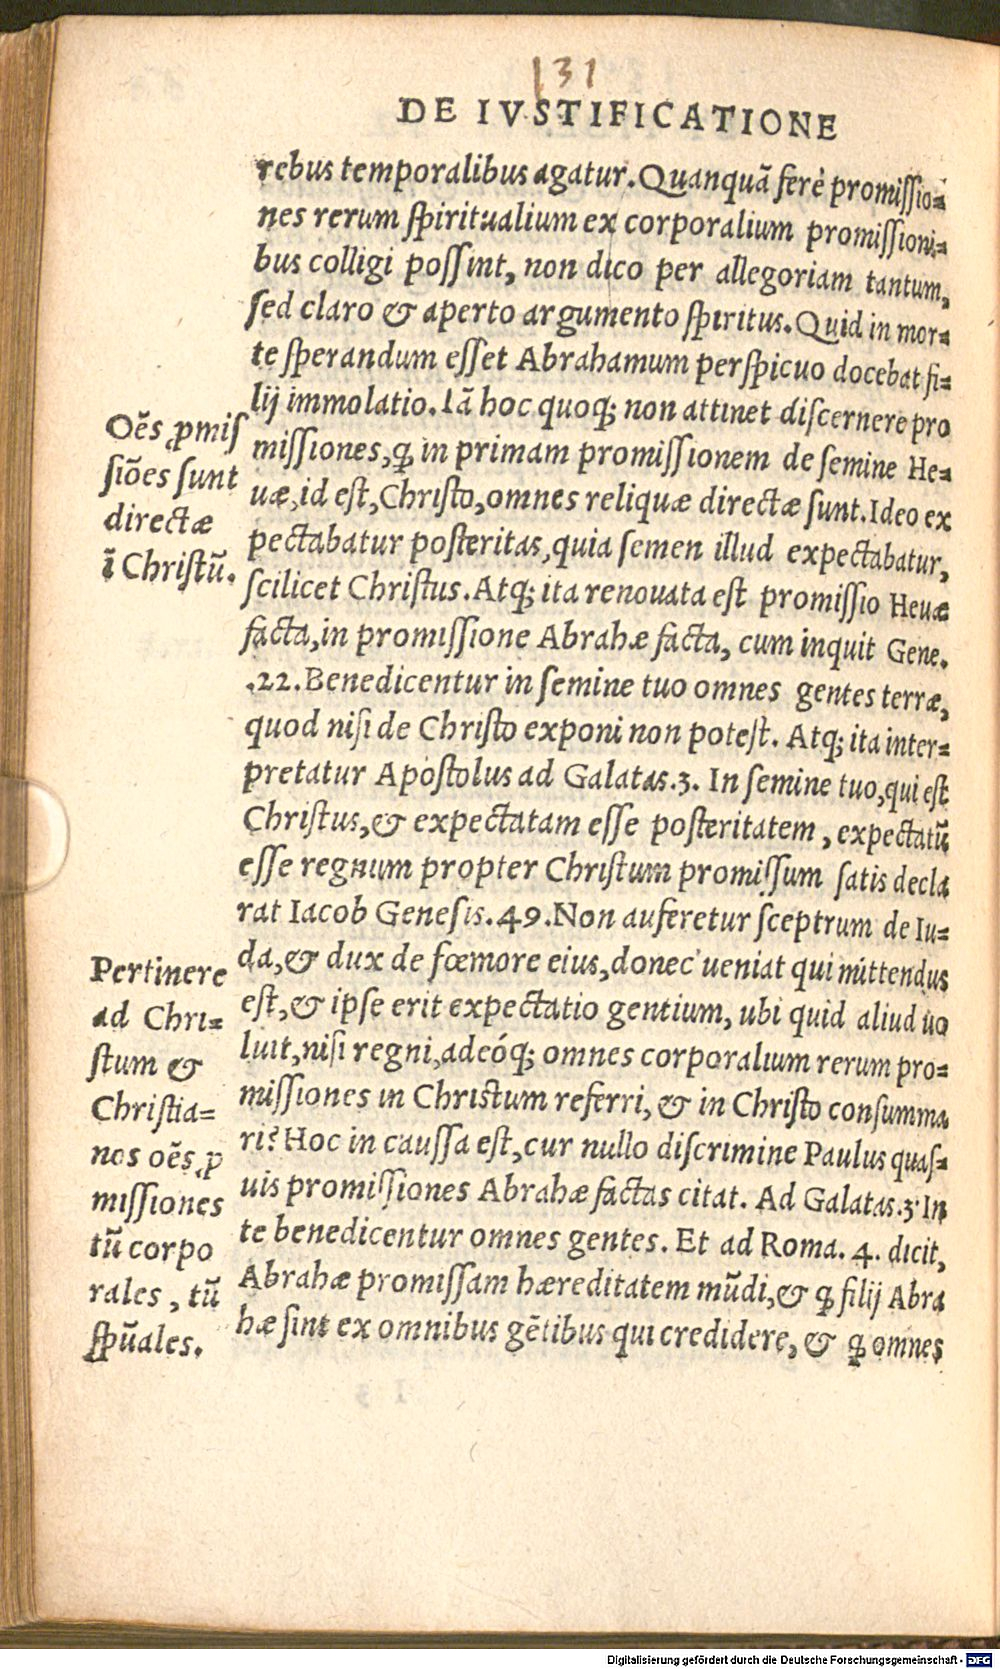 131
DE IVSTIFICATIONE
rebus temporalibus agatur. Quanquã ferè promissio-
nes rerum spiritualium ex corporalium promissioni-
bus colligi possint, non dico per allegoriam tantum,
sed claro & aperto argumento spiritus. Quid in mor-
te sperandum esset Abrahamum perspicuo docebat fi-
lij immolatio. Iã hoc quoq; non attinet discernere pro
missiones, ꝙ in primam promissionem de semine He-
uæ, id est, Christo, omnes reliquæ directæ sunt. Ideo ex
pectabatur posteritas, quia semen illud expectabatur,
scilicet Christus. Atq; ita renouata est promissio Heuæ
facta, in promissione Abrahæ facta, cum inquit Gene.
.22. Benedicentur in semine tuo omnes gentes terræ,
quod nisi de Christo exponi non potest. Atq; ita inter-
pretatur Apostolus ad Galatas.3. In semine tuo, qui est
Christus, & expectatam esse posteritatem, expectatũ
esse regnum propter Christum promissum satis decla
rat Iacob Genesis.49. Non auferetur sceptrum de Iu-
da, & dux de fœmore eius, donec ueniat qui mittendus
est, & ipse erit expectatio gentium, ubi quid aliud uo
luit, nisi regni, adeóq; omnes corporalium rerum pro-
missiones in Christum referri, & in Christo consumma
ri? Hoc in caussa est, cur nullo discrimine Paulus quas-
uis promissiones Abrahæ factas citat. Ad Galatas.3. In
te benedicentur omnes gentes. Et ad Roma. 4. dicit,
Abrahæ promissam hæreditatem mũdi, & ꝙ filij Abra
hæ sint ex omnibus gẽtibus qui credidere, & ꝙ omnes
Oẽs ꝓmis
siões sunt
directæ
ĩ Christũ.
Pertinere
ad Chri-
stum &
Christia-
nos oẽs ꝓ
missiones
tũ corpo
rales, tũ
spũales.
Digitalisierung gefördert durch die Deutsche Forschungsgemeinschaft - DFG